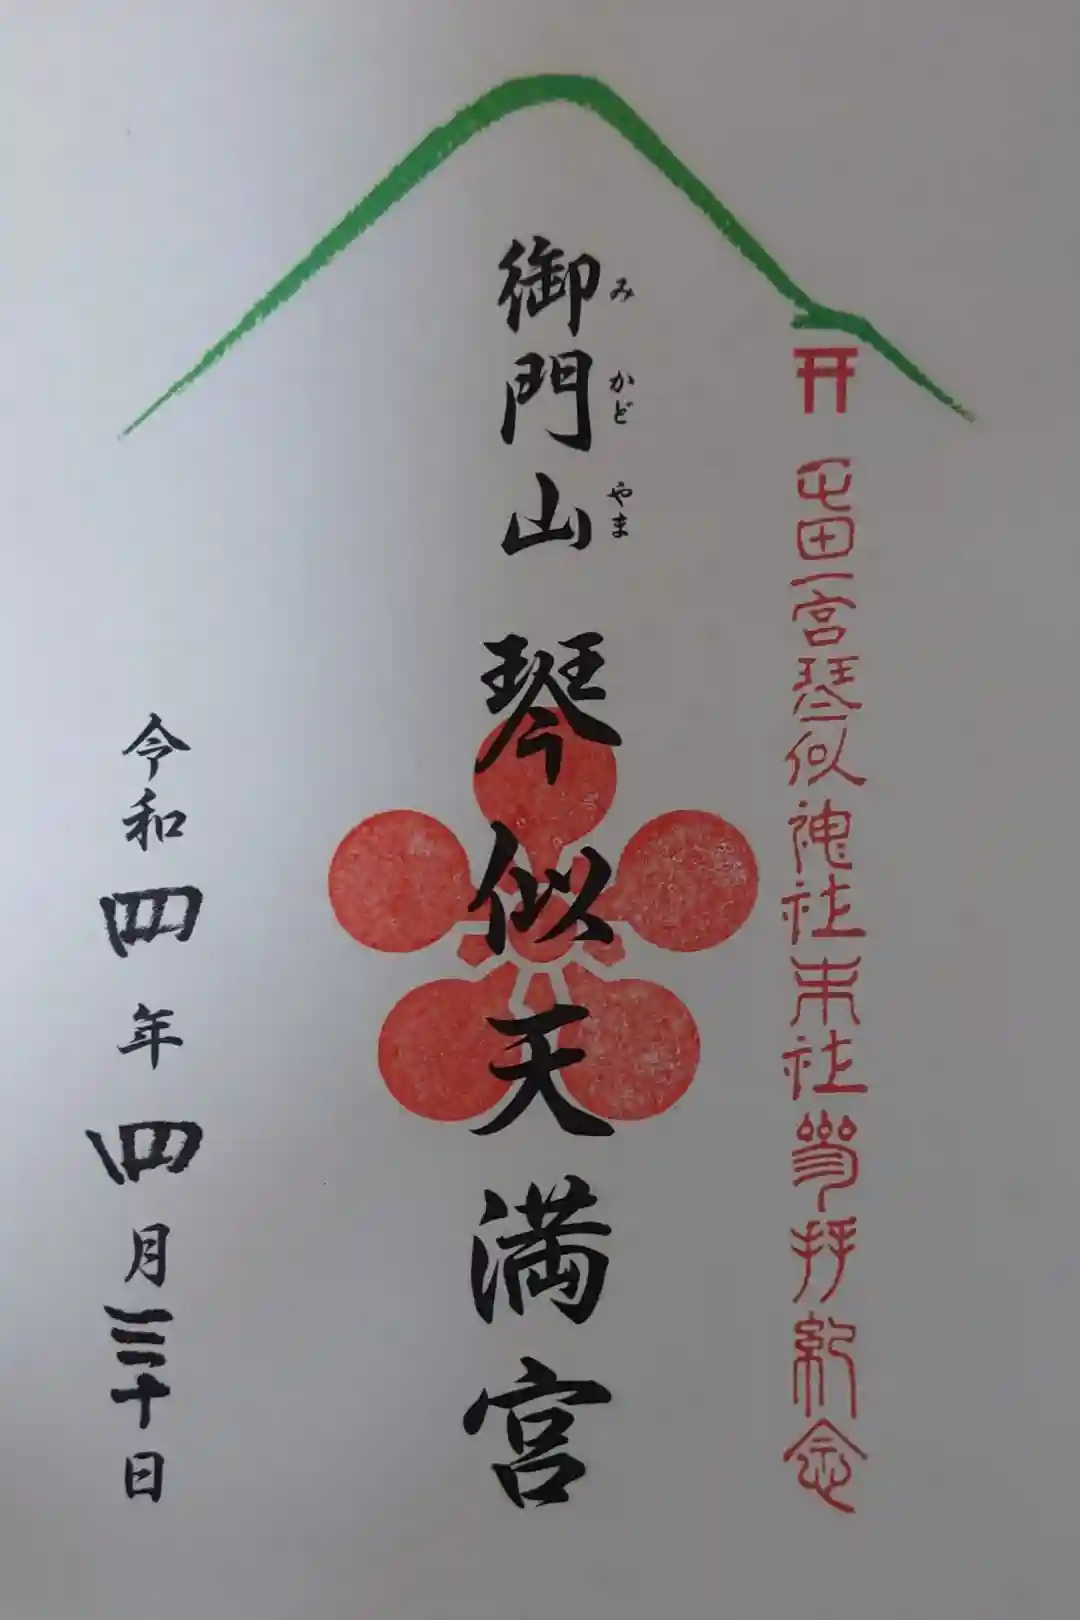 屯田一宮琴似神社末社参拝紀念
御門山 琴似天満宮
みかどやま
令和四年四月三十日